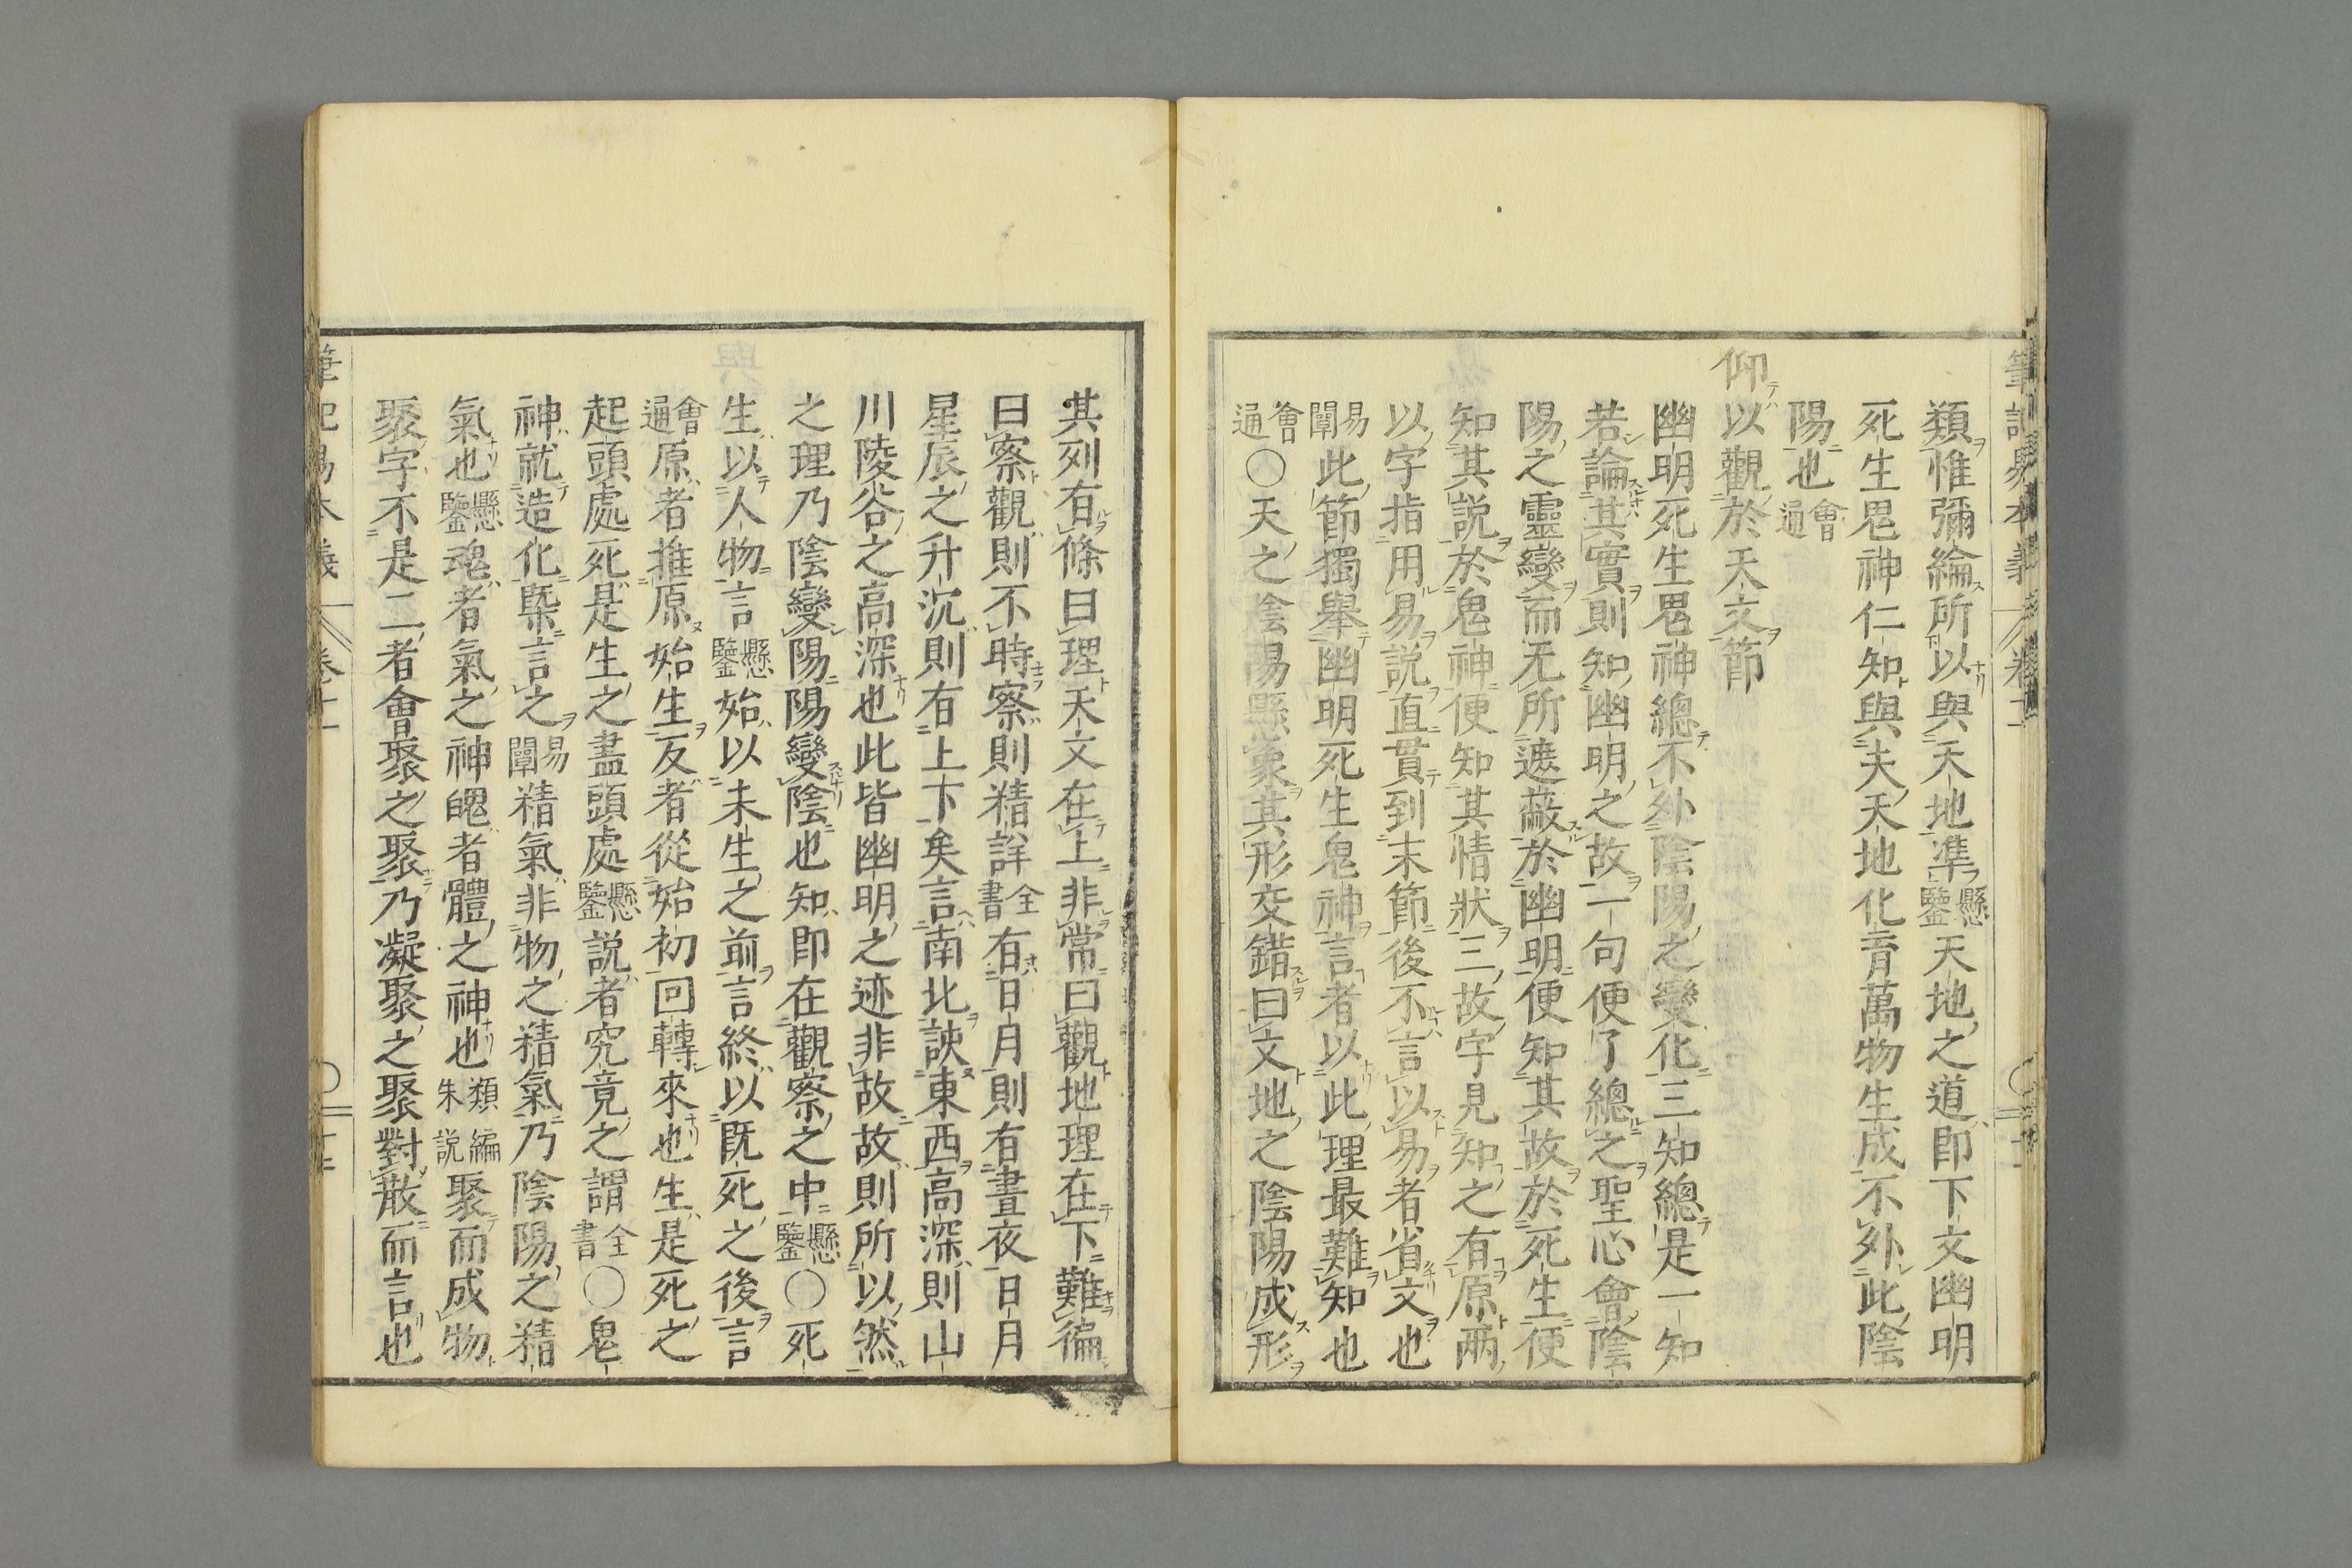 類惟彌綸所以與天地準懸鑒天地之道即下文幽明
死生鬼神仁知與夫天地化育萬物生成不外此陰
陽也會通
仰以觀於天文節
幽明死生鬼神總不外陰陽之變化三知總是一知
若論其實則知幽明之故一句便了總之聖心會陰
陽之靈變而无所遮蔽於幽明便知其故於死生便
知其説於鬼神便知其情狀三故字見知之有原兩
以字指用易説直貫到末節後不言以易者省文也
易闡此節獨舉幽明死生鬼神言者以此理最難知也
會通〇天之陰陽懸象其形交錯曰文地之陰陽成形
其列有條曰理天文在上非常曰觀地理在下難徧
曰察觀則不時察則精詳全書有日月則有晝夜日月
星辰之升沉則有上下矣言南北諛東西高深則山
川陵谷之高深也此皆幽明之迹非故故則所以然
之理乃陰變陽陽變陰也知即在觀察之中懸鑒〇死
生以人物言懸鑒始以未生之前言終以既死之後言
會通原者推原始生反者從始初回轉來也生是死之
起頭處死是生之盡頭處懸鑒説者究竟之謂全書〇鬼
神就造化槩言之易闡精氣非物之精氣乃陰陽之精
氣也懸鑒魂者氣之神魄者體之神也類編朱説聚而成物
聚字不是二者會聚之聚乃凝聚之聚對散而言也